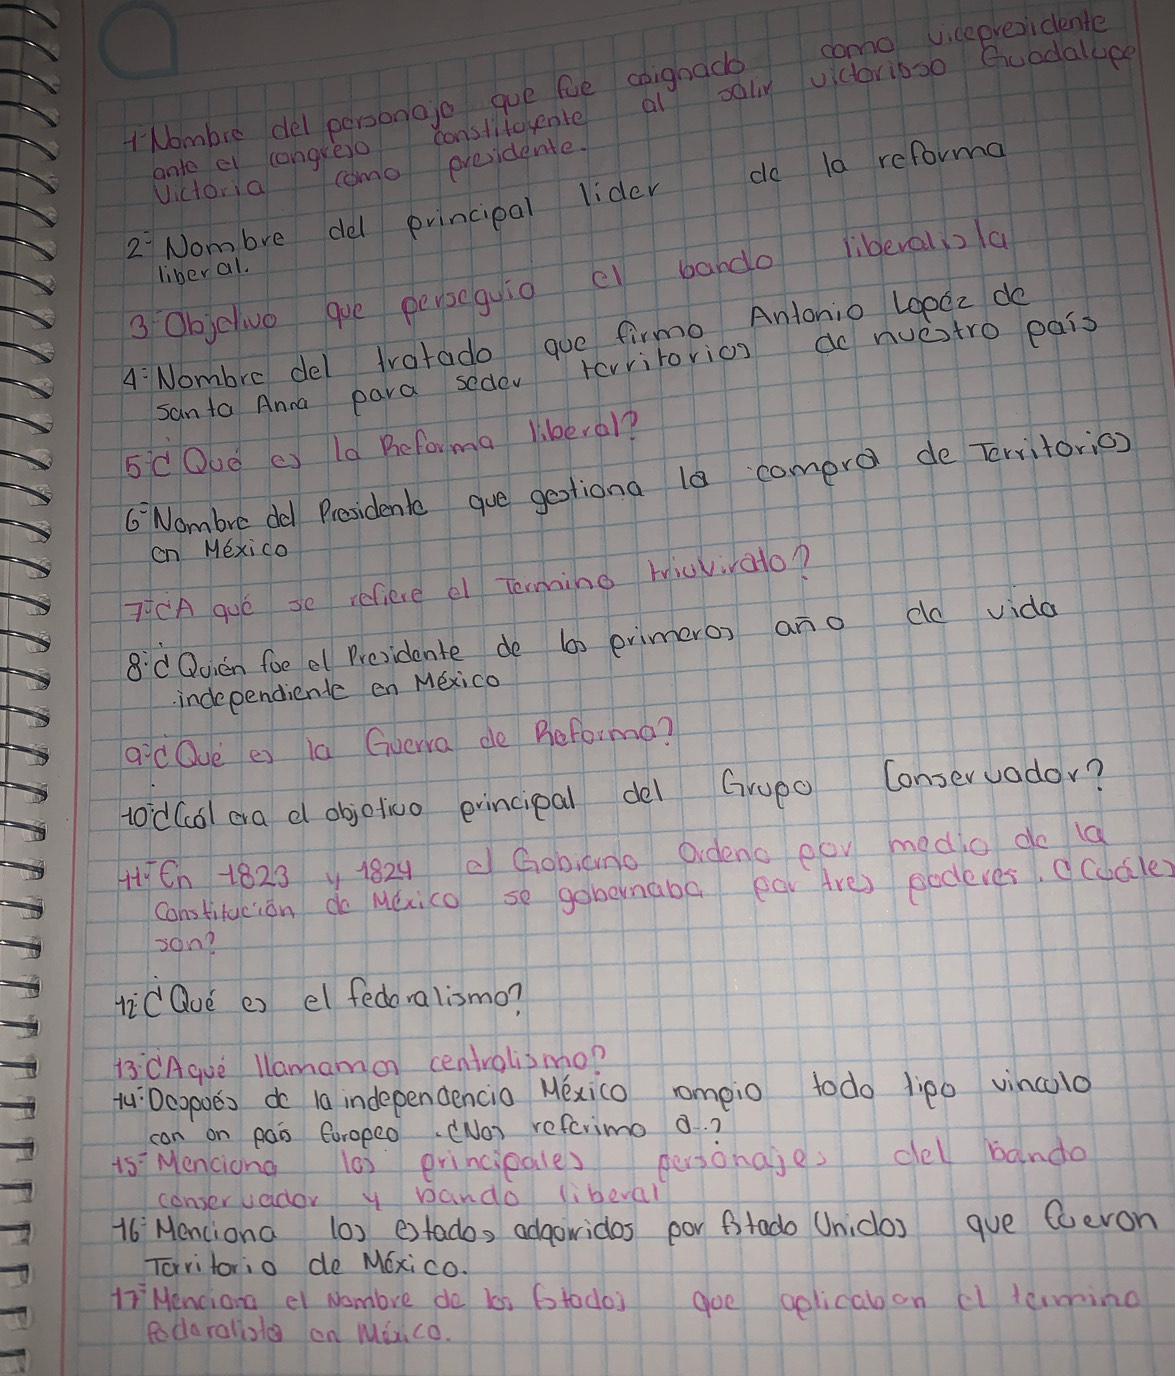 1-Nombre del personaje que fue asignado como vicepresidente
ante el congreso constituyente al salir victorioso Guadalupe
Victoria como presidente.
2- Nombre del principal lider de la reforma
liberal.
3-Objetivo que perseguia el bando liberalista
4-Nombre del tratado que firmo Antonio Lopéz de
Santa Anna para seder territorios de nuestro país
5-¿Qué es la Reforma liberal?
6-Nombre del Presidente que gestiona la compra de Territorios
en México
7-¿A qué se refiere el Termino triuvirato?
8-¿Quién fue el Presidente de los primeros año de vida
independiente en México
9-¿Qué es la Guerra de Reforma?
10-¿Cuál era el objetivo principal del Grupo Conservador?
11-En 1823 y 1824 el Gobierno Ordeno por medio de la
Constitución de México se gobernaba por tres poderes. ¿Cuáles
son?
12-¿Qué es el federalismo?
13-¿Aqué llamamos centralismo?
14-Después de la independencia México rompio todo tipo vinculo
con un país Europeo. ¿Nos referimo a..?
15-Menciona los principales personajes del bando
conservador y bando liberal
16-Menciona los estados adquiridos por Estado Unidos que fueron
Territorio de México.
17-Menciona el Nombre de los Estados que aplicaban el termino
Federalista en México.